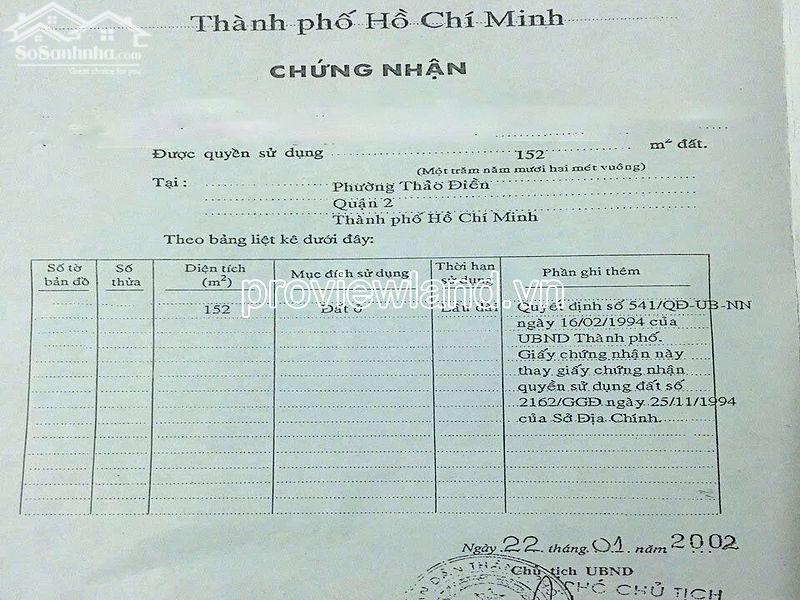 Thành phố Hồ Chí Minh
SoSanhnha.com
Great choice for you
CHỨNG NHẬN
Được quyền sử dụng 152 m² đất.
(Một trăm năm mươi hai mét vuông)
Tại : Phường Thảo Điền
Quận 2
Thành phố Hồ Chí Minh
Theo bảng liệt kê dưới đây:
Số tờ bản đồ Số thửa Diện tích (m²) Mục đích sử dụng Thời hạn sử dụng Phần ghi thêm
proviewland.vn
152 Đất ở Lâu dài Quyết định số 541/QĐ-UB-NN
ngày 16/02/1994 của
UBND Thành phố.
Giấy chứng nhận này
thay giấy chứng nhận
quyền sử dụng đất số
2162/GGĐ ngày 25/11/1994
của Sở Địa Chính.
Ngày 22 tháng 01 năm 2002
Chủ tịch UBND
PHÓ CHỦ TỊCH
DÂN THÀNH